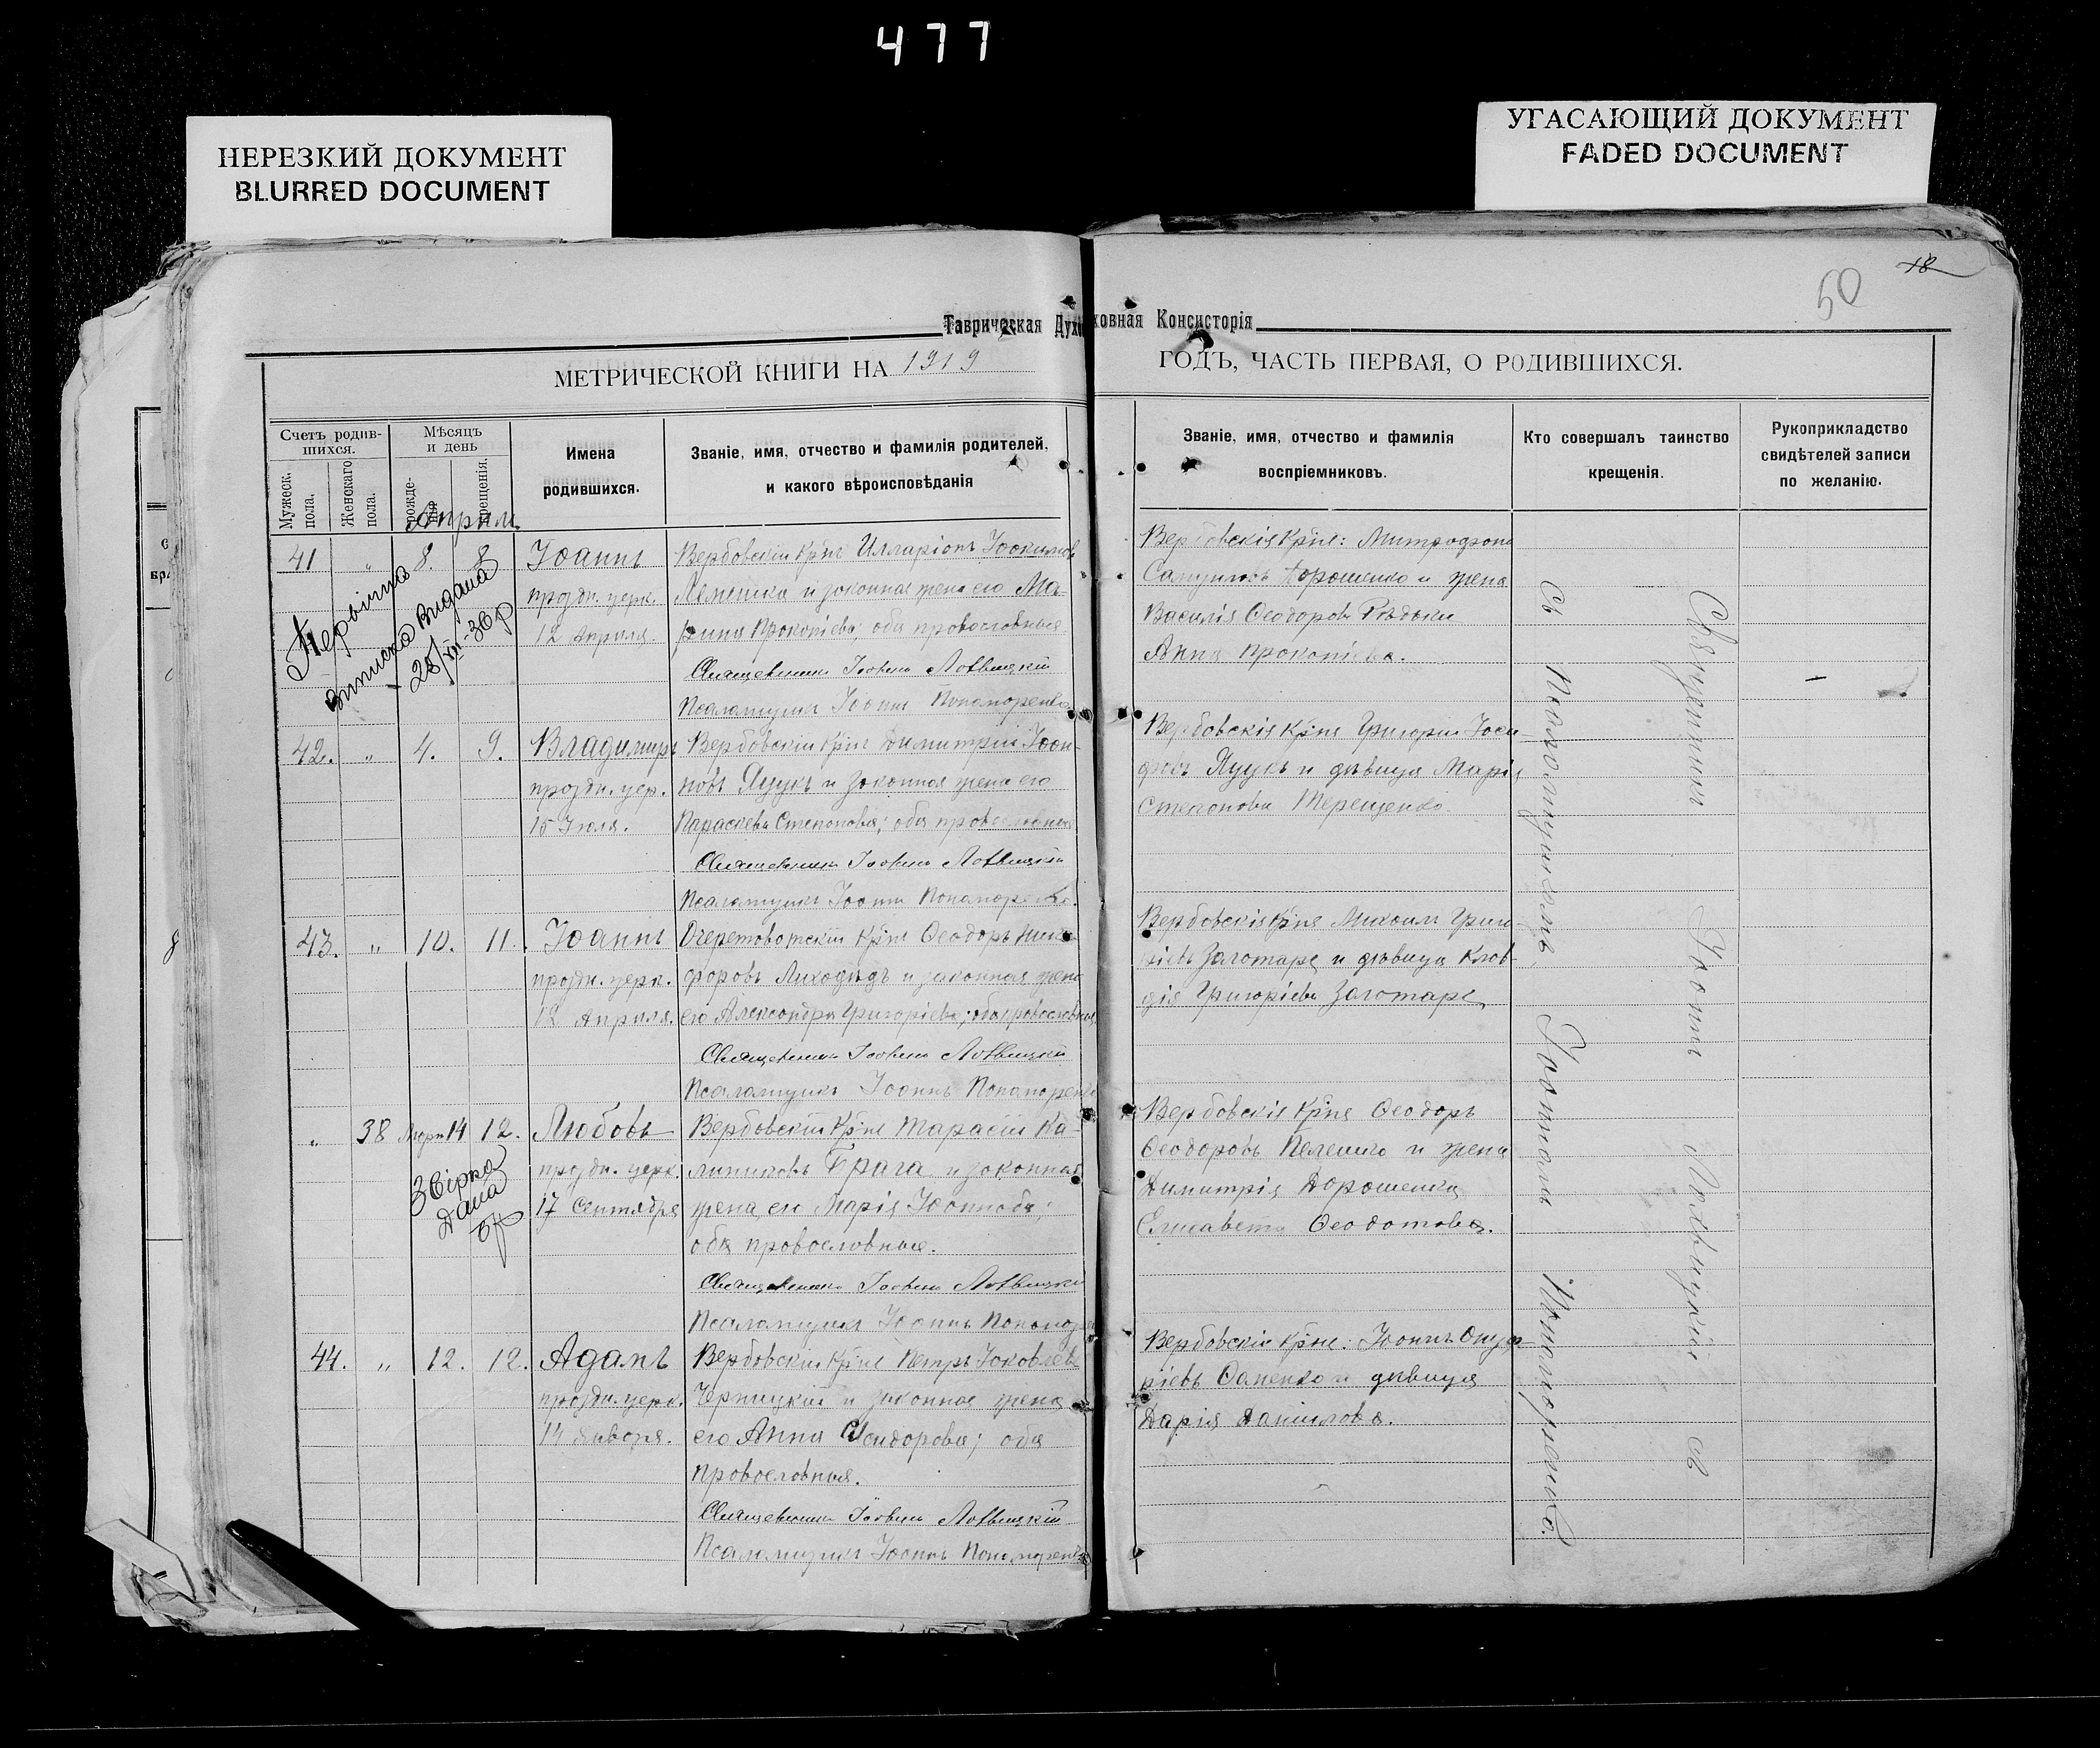 477
НЕРЕЗКИЙ ДОКУМЕНТ
BLURRED DOCUMENT
УГАСАЮЩИЙ ДОКУМЕНТ
FADED DOCUMENT
18
50
Таврическая Духовная Консисторія
МЕТРИЧЕСКОЙ КНИГИ НА 1919 ГОДЪ, ЧАСТЬ ПЕРВАЯ, О РОДИВШИХСЯ.
Счетъ родив-
шихся.
Мужеск.
пола.
Женскаго
пола.
Мѣсяцъ
и день
рожде-
крещенія.
Имена
родившихся.
Званіе, имя, отчество и фамилія родителей,
и какого вѣроисповѣданія
Званіе, имя, отчество и фамилія
воспріемниковъ.
Кто совершалъ таинство
крещенія.
Рукоприкладство
свидѣтелей записи
по желанію.
Апрѣль
41 " 8. 8 Іоаннъ
праздн. церк.
12 Апрѣля.
Вербовскій Крн: Илларіонъ Іоакимовъ
Лемешка и законная жена его Ма-
рина Прокопіева; оба православные
Священникъ Іоаннъ Лотвицкій
Псаломщикъ Іоаннъ Пономаренко
Вербовскія Крне: Митрофанъ
Самуиловъ Дорошенко и жена
Василія Феодоровъ Рѣдьки
Анна Прокопіева.
Первична
виписка видана
28/VII-36р
42. " 4. 9. Владимиръ
праздн. цер.
15 Іюля.
Вербовскій Крн: Димитрій Іоан-
новъ Яцукъ и законная жена его
Параскева Степанова; оба православные
Священникъ Іоаннъ Лотвицкій
Псаломщикъ Іоаннъ Пономаренко.
Вербовскія Крне Григорій Іоси-
фовъ Яцукъ и дѣвица Марія
Степанова Терещенко.
43. " 10. 11. Іоаннъ
праздн. церк.
12 Апрѣля.
Очеретоватскій Крн: Феодоръ Ники-
форовъ Лиходѣдъ и законная жена
его Александра Григоріева; оба православные
Священникъ Іоаннъ Лотвицкій
Псаломщикъ Іоаннъ Пономаренко
Вербовскія Крне Михаилъ Григо-
ріевъ Золотарь и дѣвица Клав-
дія Григоріева Золотарь
" 38 14 12. Любовь
праздн. церк.
17 Сентября
Вербовскій Крн: Тарасій Ка-
линиковъ Брага и законная
жена его Марія Іоаннова;
оба православные.
Священникъ Іоаннъ Лотвицкій
Псаломщикъ Іоаннъ Пономаренко
Вербовскія Крне Феодоръ
Феодоровъ Пелешко и жена
Димитрія Дорошенка
Елисавета Феодотова.
Звірка
дана
44. " 12. 12. Адамъ
праздн. церк.
14 Января.
Вербовскій Крн: Петръ Іаковлевъ
Черницкій и законная жена
его Анна Исидорова; оба
православные.
Священникъ Іоаннъ Лотвицкій
Псаломщикъ Іоаннъ Пономаренко
Вербовскія Крне: Іоаннъ Онуф-
ріевъ Фоменко и дѣвица
Дарія Данилова.
Священникъ Іоаннъ Лотвицкій съ
съ Псаломщикомъ Іоанномъ Пономаренко.